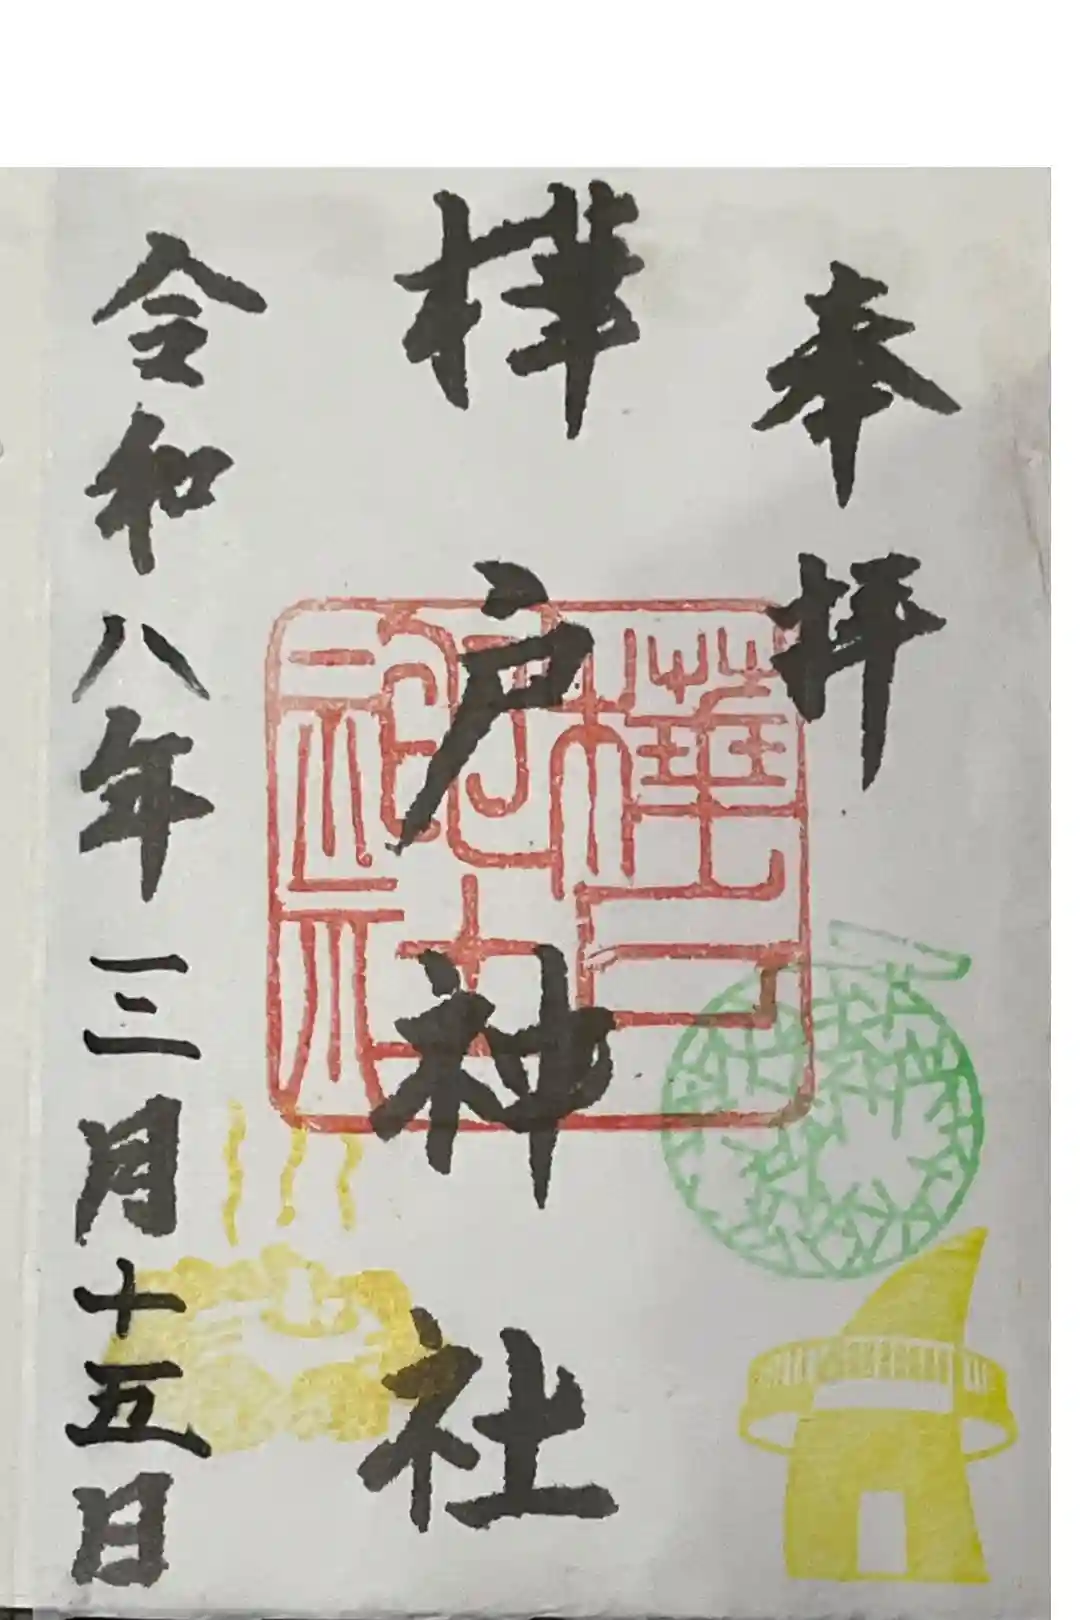 奉拝
樺戸神社
令和八年三月十五日
樺戸神社印